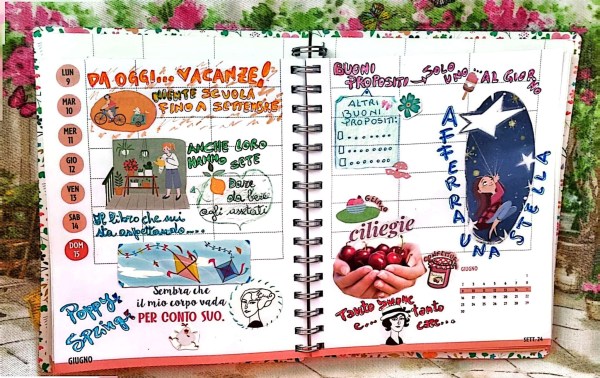 LUN
9
MAR
10
MER
11
GIO
12
VEN
13
SAB
14
DOM
15
DA OGGI... VACANZE!
NIENTE SCUOLA
FINO A SETTEMBRE
ANCHE LORO
HANNO SETE
Dare
da bere
agli assetati
Il libro che sui
sta aspettando....
Sembra che
il mio corpo vada
PER CONTO SUO.
Poppy
Spring
GIUGNO
BUONI
PROPOSITI → SOLO
UNO... AL GIORNO
ALTRI
BUONI
PROPOSITI:
AFFERRA UNA STELLA
GIUGNO
ciliegie
CONFETTURA
GIUGNO
Tanto buone
e... tanto
care...
SETT. 24